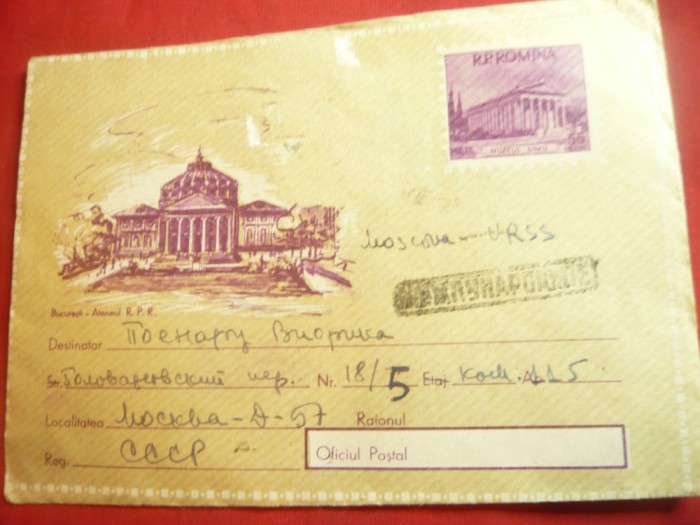 R.P. ROMINA
55
MUZEUL SIMU
Moscova URSS
МЕЖДУНАРОДНОЕ
București - Ateneul R. P. R.
Destinatar Поенару Виорика
Str. Головановский пер. Nr. 18/5 Etaj Ком. Ap. 115
Localitatea Москва-Д-57 Raionul
Reg. СССР Oficiul Poștal